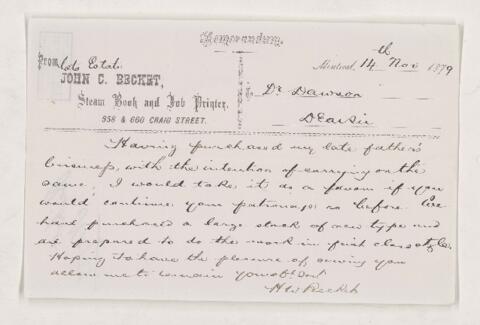 Memorandum.
From late Estate
JOHN C. BECKET,
Steam Book and Job Printer,
658 & 660 CRAIG STREET.
Montreal, 14th Nov 1879
To Dr Dawson
Dear Sir
Having purchased my late father's
business, with the intention of carrying on the
same, I would take it as a favour if you
would continue your patronage as before. We
have purchased a large stock of new type and
are prepared to do the work in first class style.
Hoping to have the pleasure of serving you
allow me to remain your obt Servt
H W Becket